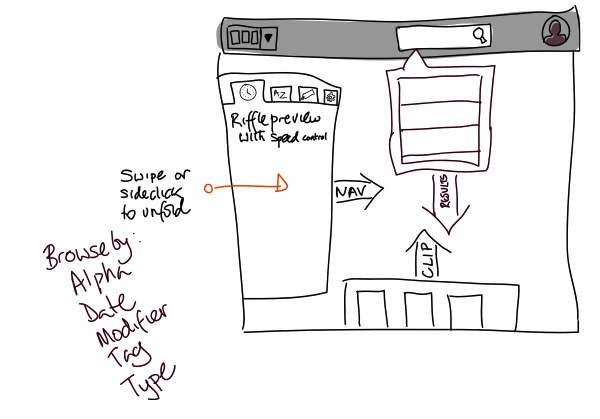 AZ
Riffle preview
with speed control
Swipe or
sideclick
to unfold
NAV
RESULTS
CLIP
Browse by:
Alpha
Date
Modifier
Tag
Type